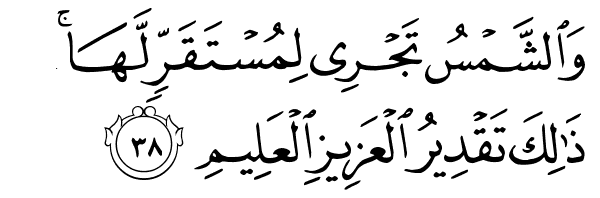 وَٱلشَّمْسُ تَجْرِى لِمُسْتَقَرٍّ لَّهَا ۚ
ذَٰلِكَ تَقْدِيرُ ٱلْعَزِيزِ ٱلْعَلِيمِ ٣٨